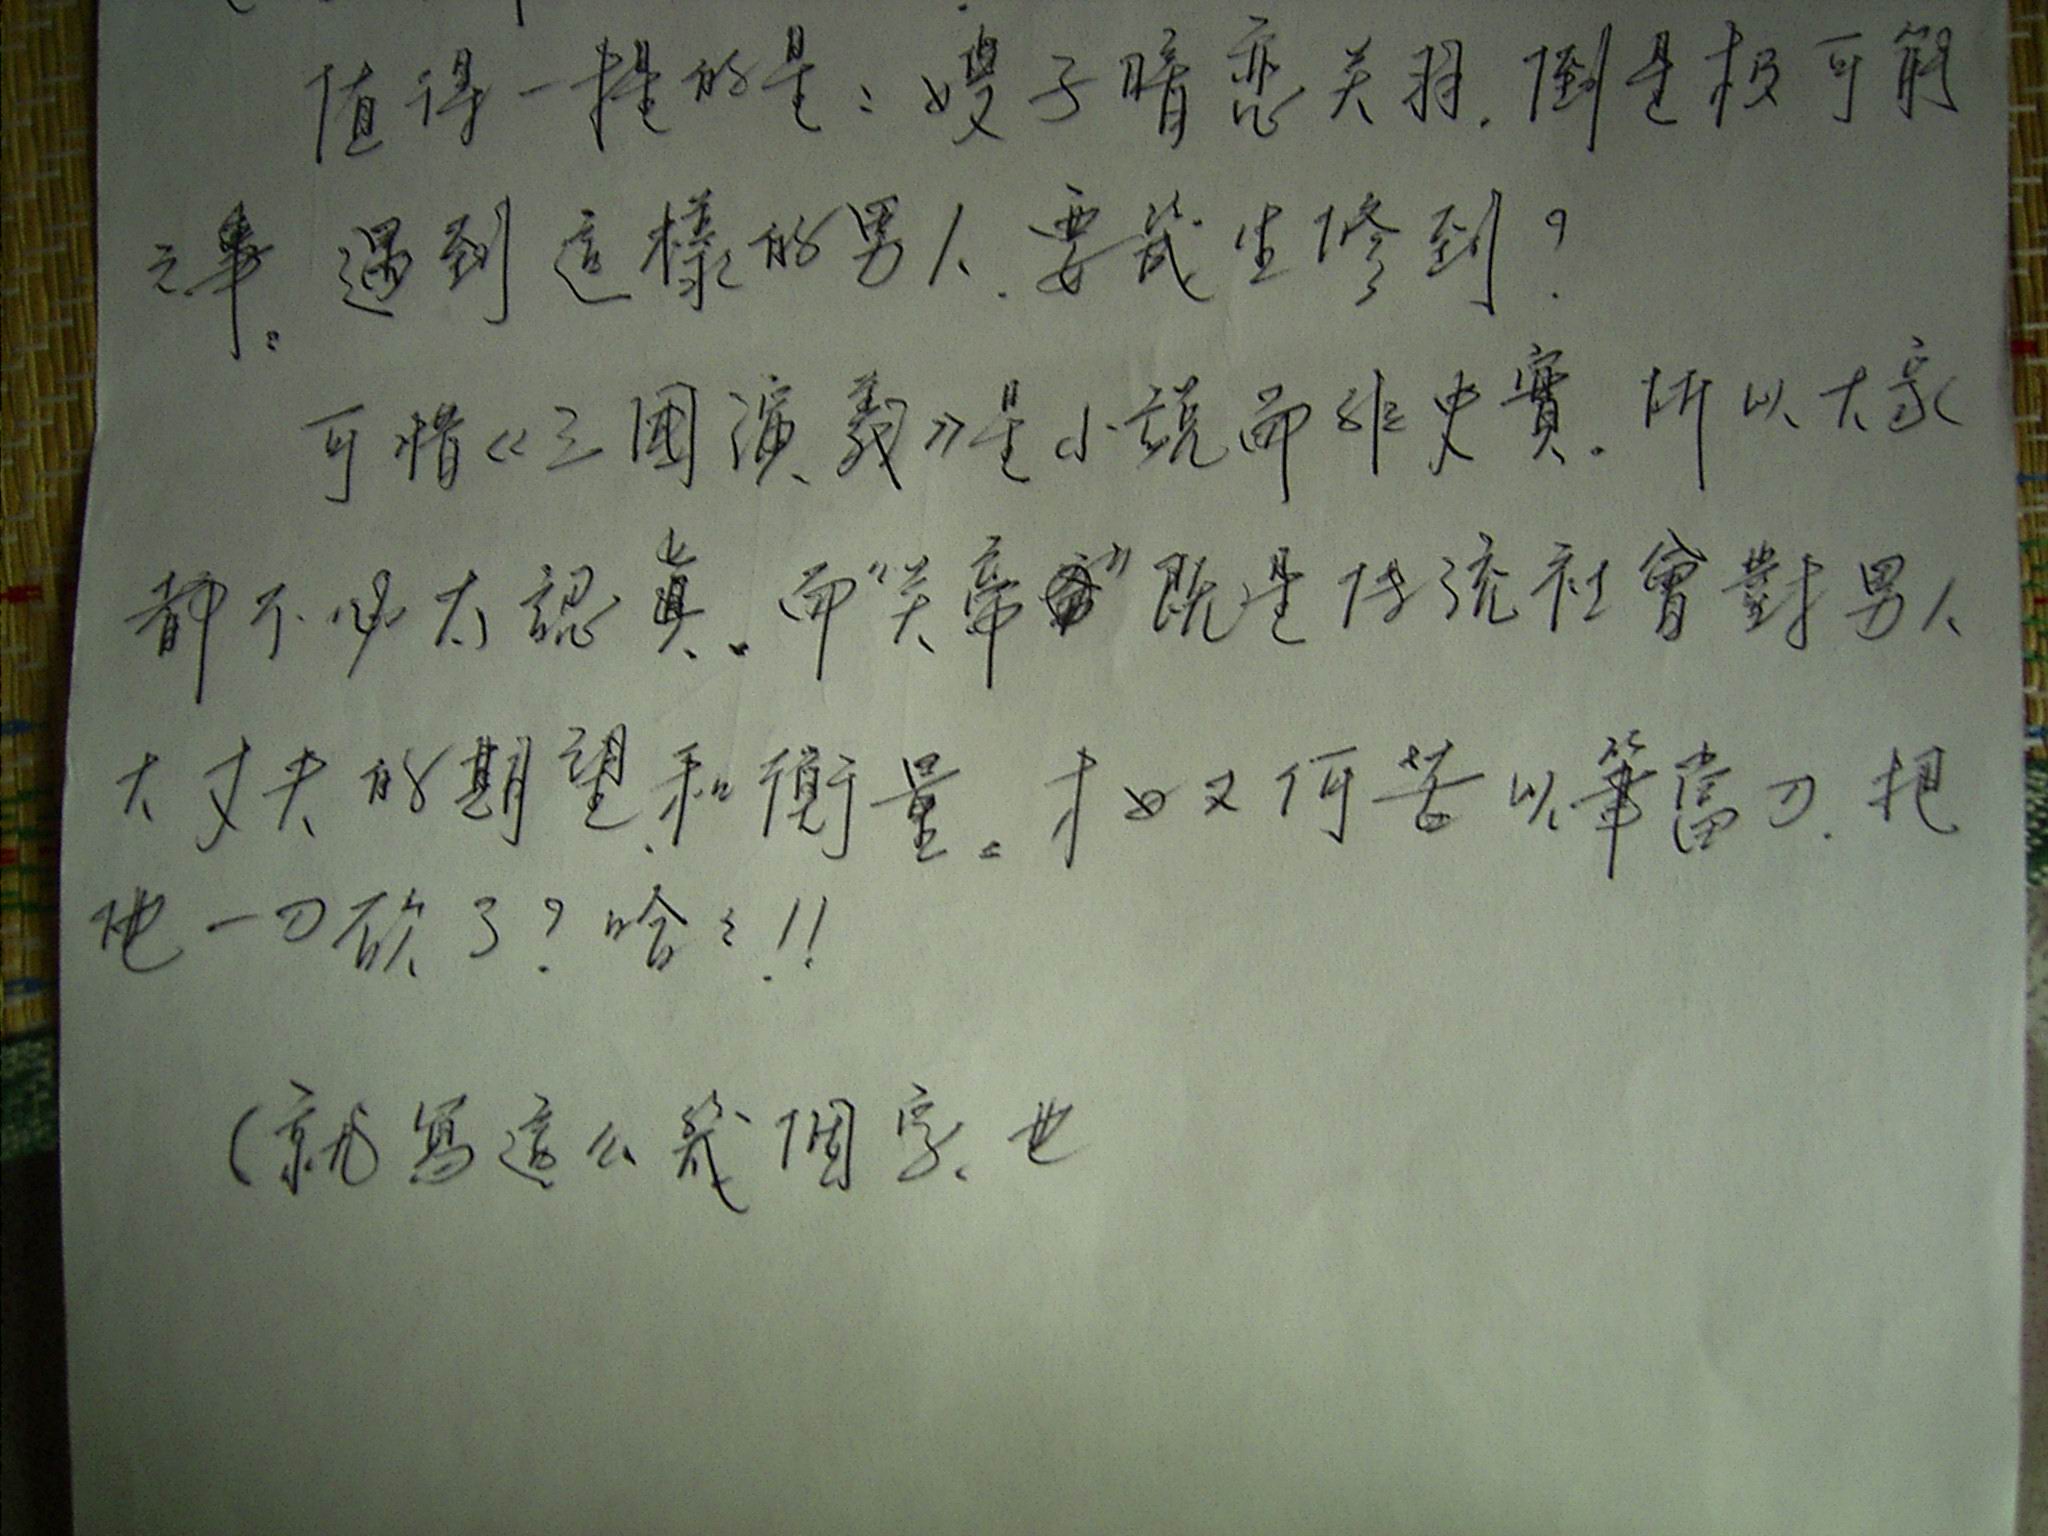 值得一提的是：嫂子暗恋关羽．倒是极可能
之事。遇到這樣的男人．要幾生修到？
可惜《三國演義》是小説而非史實．所以大家
都不必太認真。而“关帝”既是传統社會對男人
大丈夫的期望和衡量。才女又何苦以筆當刀．把
他一刀砍了？哈々!!
（就寫這么幾個字、也